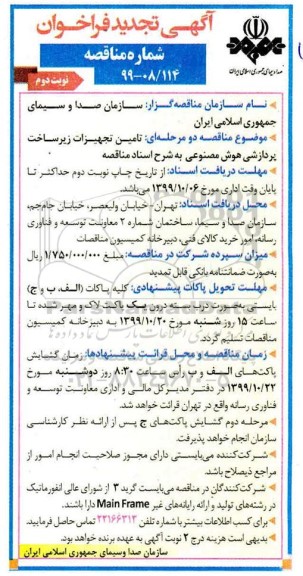 آگهی تجدید فراخوان
شماره مناقصه
۹۹-۰۸/۱۱۴
نوبت دوم
صدا و سیمای جمهوری اسلامی ایران
نام سازمان مناقصه‌گزار: سازمان صدا و سیمای
جمهوری اسلامی ایران
موضوع مناقصه دو مرحله‌ای: تامین تجهیزات زیرساخت
پردازشی هوش مصنوعی به شرح اسناد مناقصه
مهلت دریافت اسناد: از تاریخ چاپ نوبت دوم حداکثر تا
پایان وقت اداری مورخ ۱۳۹۹/۱۰/۰۶ می‌باشد.
محل دریافت اسناد: تهران - خیابان ولیعصر، خیابان جام‌جم،
سازمان صدا و سیما، ساختمان شماره ۲ معاونت توسعه و فناوری
رسانه، امور خرید کالای فنی، دبیرخانه کمیسیون مناقصات
میزان سپرده شرکت در مناقصه: مبلغ ۱/۷۵۰/۰۰۰/۰۰۰ ریال
به‌صورت ضمانتنامه بانکی قابل تمدید
مهلت تحویل پاکات پیشنهادی: کلیه پاکات (الف، ب و ج)
بایستی به‌صورت دربسته درون یک پاکت لاک و مهر شده تا
ساعت ۱۵ روز شنبه مورخ ۱۳۹۹/۱۰/۲۰ به دبیرخانه کمیسیون
مناقصات تسلیم گردد.
زمان مناقصه و محل قرائت پیشنهادها: زمان گشایش
پاکت‌های الف و ب رأس ساعت ۸:۳۰ روز دوشنبه مورخ
۱۳۹۹/۱۰/۲۲ در دفتر مدیرکل مالی و اداری معاونت توسعه و
فناوری رسانه واقع در تهران قرائت خواهد شد.
مرحله دوم گشایش پاکت‌های ج پس از ارائه نظر کارشناسی
سازمان انجام خواهد پذیرفت.
شرکت‌کننده می‌بایستی دارای مجوز صلاحیت انجام امور از
مراجع ذیصلاح باشد.
شرکت‌کنندگان در مناقصه می‌بایست گرید ۳ از شورای عالی انفورماتیک
در رشته‌های تولید و ارائه رایانه‌های غیر Main Frame دارا باشند.
برای کسب اطلاعات بیشتر با شماره تلفن ۲۲۱۶۶۳۱۳ تماس حاصل فرمایید.
بدیهی است هزینه درج ۲ نوبت آگهی به عهده برنده خواهد بود.
سازمان صدا وسیمای جمهوری اسلامی ایران